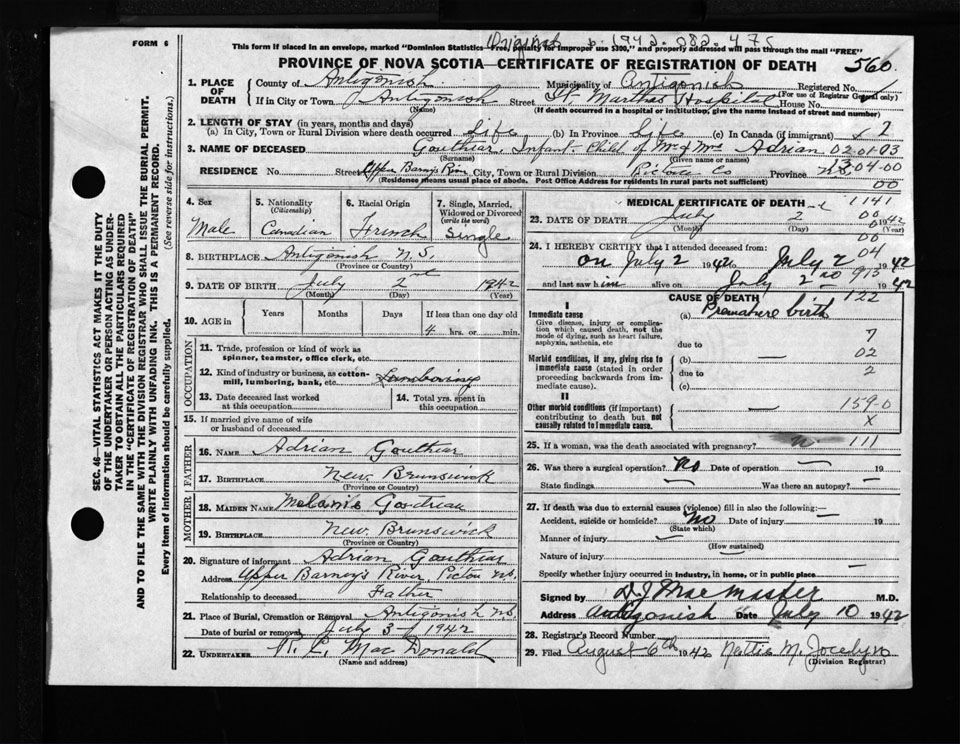 Original p. 1942. 082. 475
FORM 6
This form if placed in an envelope, marked "Dominion Statistics—Free, penalty for improper use $300," and properly addressed will pass through the mail "FREE"
PROVINCE OF NOVA SCOTIA—CERTIFICATE OF REGISTRATION OF DEATH 560
1. PLACE OF DEATH County of Antigonish Municipality of Antigonish Registered No.
(For use of Registrar General only)
If in City or Town Antigonish Street St Marthas Hospital House No.
(Name) (If death occurred in a hospital or institution, give the name instead of street and number)
2. LENGTH OF STAY (in years, months and days)
(a) In City, Town or Rural Division where death occurred Life (b) In Province Life (c) In Canada (if immigrant) x 2
3. NAME OF DECEASED Gouthiar, Infant- Child of Mr & Mrs Adrian 02-01-03
(Surname) (Given name or names)
RESIDENCE No. Street Upper Barny's River City, Town or Rural Division Pictou Co Province 04-00
(Residence means usual place of abode. Post Office Address for residents in rural parts not sufficient) 00
4. Sex Male
5. Nationality (Citizenship) Canadian
6. Racial Origin French
7. Single, Married, Widowed or Divorced (write the word) Single
8. BIRTHPLACE Antigonish N.S.
(Province or Country)
9. DATE OF BIRTH July 2nd 1942
(Month) (Day) (Year)
10. AGE in Years Months Days If less than one day old
4 hrs. or min.
OCCUPATION
11. Trade, profession or kind of work as spinner, teamster, office clerk, etc.
12. Kind of industry or business, as cotton-mill, lumbering, bank, etc.
13. Date deceased last worked at this occupation
14. Total yrs. spent in this occupation
15. If married give name of wife or husband of deceased
FATHER
16. NAME Adrian Gouthiar
17. BIRTHPLACE New Brunswick
(Province or Country)
MOTHER
18. MAIDEN NAME Melanie
19. BIRTHPLACE New Brunswick
(Province or Country)
20. Signature of informant Adrian Gouthiar
Address Upper Barney's River, Pictou NS.
Relationship to deceased Father
21. Place of Burial, Cremation or Removal Antigonish NS.
Date of burial or removal July 3- 1942
22. UNDERTAKER R. C. MacDonald
(Name and address)
MEDICAL CERTIFICATE OF DEATH 1141
23. DATE OF DEATH July 2 1942
(Month) (Day) (Year)
00
00
24. I HEREBY CERTIFY that I attended deceased from: 04
on July 2 1942 to July 2 1942
and last saw him alive on July 2 1942
CAUSE OF DEATH 122
I
Immediate cause (a) Premature birth
Give disease, injury or complication which caused death, not the mode of dying, such as heart failure, asphyxia, asthenia, etc
due to 7
Morbid conditions, if any, giving rise to immediate cause (stated in order proceeding backwards from immediate cause).
(b) — 02
due to 2
(c)
II
Other morbid conditions (if important) contributing to death but not causally related to immediate cause.
— 159-0
X
25. If a woman, was the death associated with pregnancy? 111
26. Was there a surgical operation? No Date of operation — 19
State findings — Was there an autopsy? —
27. If death was due to external causes (violence) fill in also the following:—
Accident, suicide or homicide? No Date of injury — 19
(State which)
Manner of injury —
(How sustained)
Nature of injury —
Specify whether injury occurred in industry, in home, or in public place —
Signed by D J MacMaster M.D.
Address Antigonish Date July 10 1942
28. Registrar's Record Number
29. Filed August 6th 1942 Nettie M. Jocelyn
(Division Registrar)
SEC. 46—VITAL STATISTICS ACT MAKES IT THE DUTY
OF THE UNDERTAKER OR PERSON ACTING AS UNDER-
TAKER TO OBTAIN ALL THE PARTICULARS REQUIRED
IN THE "CERTIFICATE OF REGISTRATION OF DEATH"
AND TO FILE THE SAME WITH THE DIVISION REGISTRAR WHO SHALL ISSUE THE BURIAL PERMIT.
WRITE PLAINLY WITH UNFADING INK. THIS IS A PERMANENT RECORD.
Every item of information should be carefully supplied. (See reverse side for instructions.)